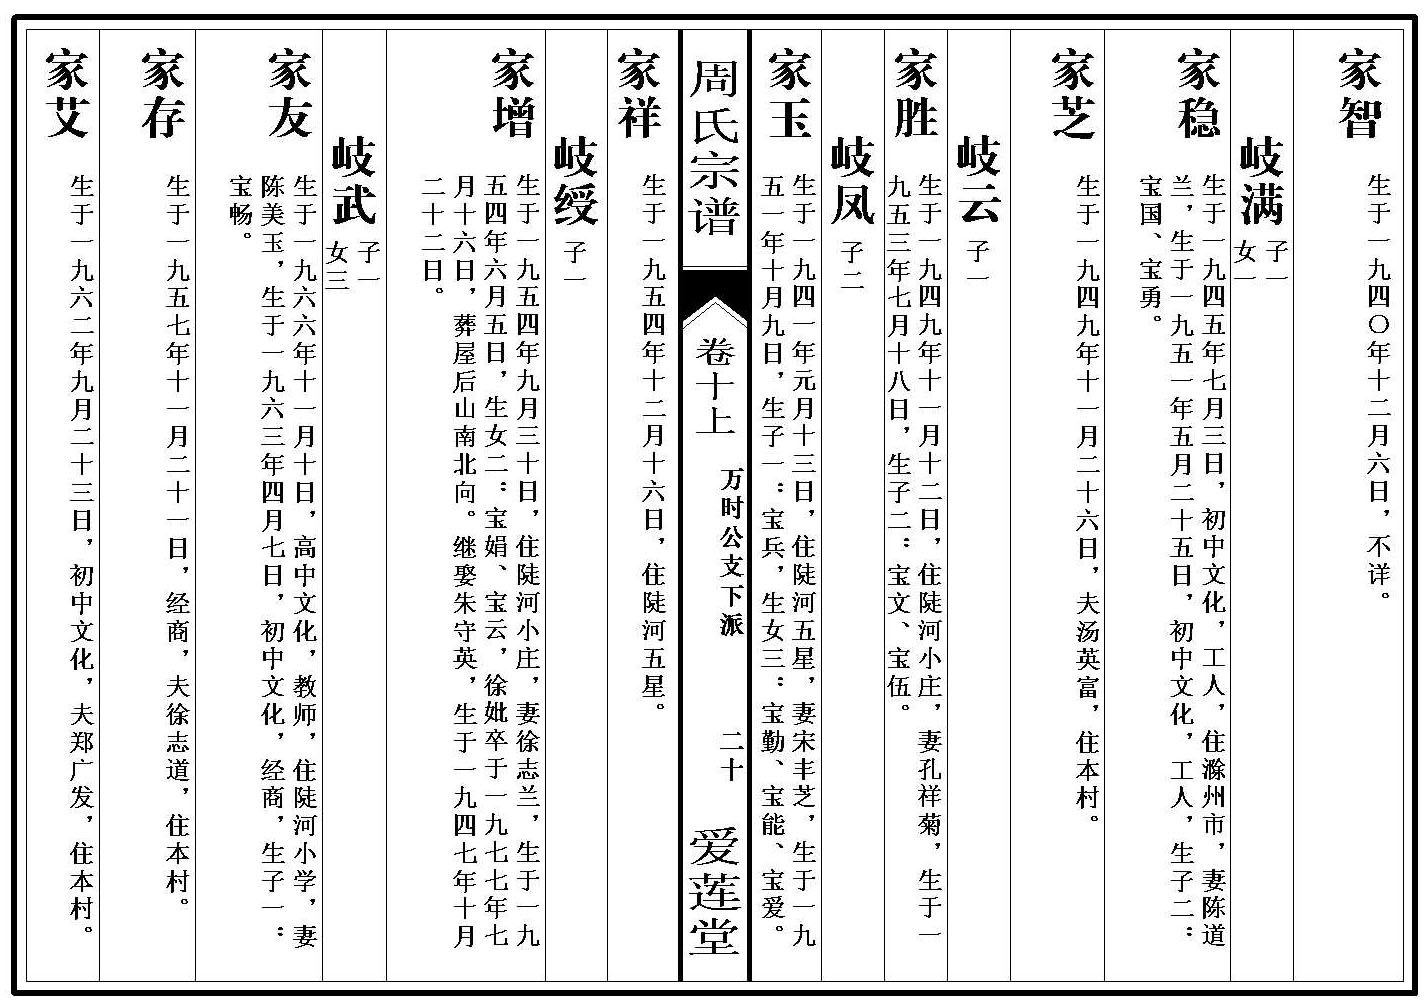 家智
生于一九四〇年十二月六日，不详。
岐满
子一
女一
家稳
生于一九四五年七月三日，初中文化，工人，住滁州市，妻陈道
兰，生于一九五一年五月二十五日，初中文化，工人，生子二：
宝国、宝勇。
家芝
生于一九四九年十一月二十六日，夫汤英富，住本村。
岐云
子一
家胜
生于一九四九年十一月十二日，住陡河小庄，妻孔祥菊，生于一
九五三年七月十八日，生子二：宝文、宝伍。
岐凤
子二
家玉
生于一九四一年元月十三日，住陡河五星，妻宋丰芝，生于一九
五一年十月九日，生子一：宝兵，生女三：宝勤、宝能、宝爱。
周氏宗谱
卷十上
万时公支下派
二十
爱莲堂
家祥
生于一九五四年十二月十六日，住陡河五星。
岐绶
子一
家增
生于一九五四年九月三十日，住陡河小庄，妻徐志兰，生于一九
五四年六月五日，生女二：宝娟、宝云，徐妣卒于一九七七年七
月十六日，葬屋后山南北向。继娶朱守英，生于一九四七年十月
二十二日。
岐武
子一
女三
家友
生于一九六六年十一月十日，高中文化，教师，住陡河小学，妻
陈美玉，生于一九六三年四月七日，初中文化，经商，生子一：
宝畅。
家存
生于一九五七年十一月二十一日，经商，夫徐志道，住本村。
家艾
生于一九六二年九月二十三日，初中文化，夫郑广发，住本村。